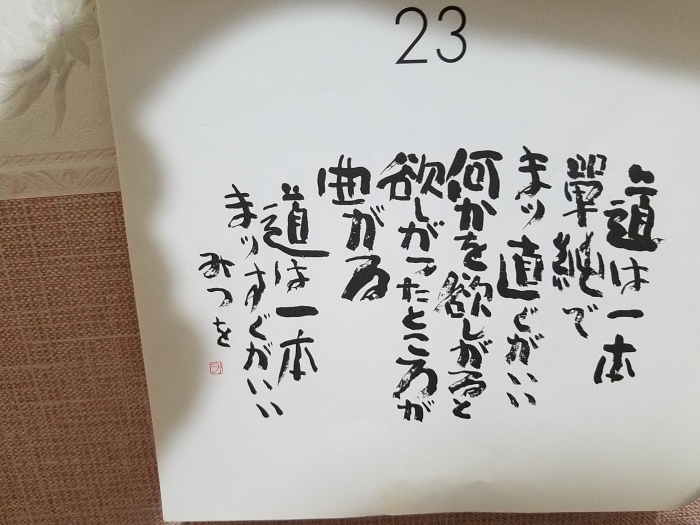 23
道は一本
單純で
まッ直ぐがいい
何かを欲しがると
欲しがったところが
曲がる
道は一本
まッすぐがいい
みつを